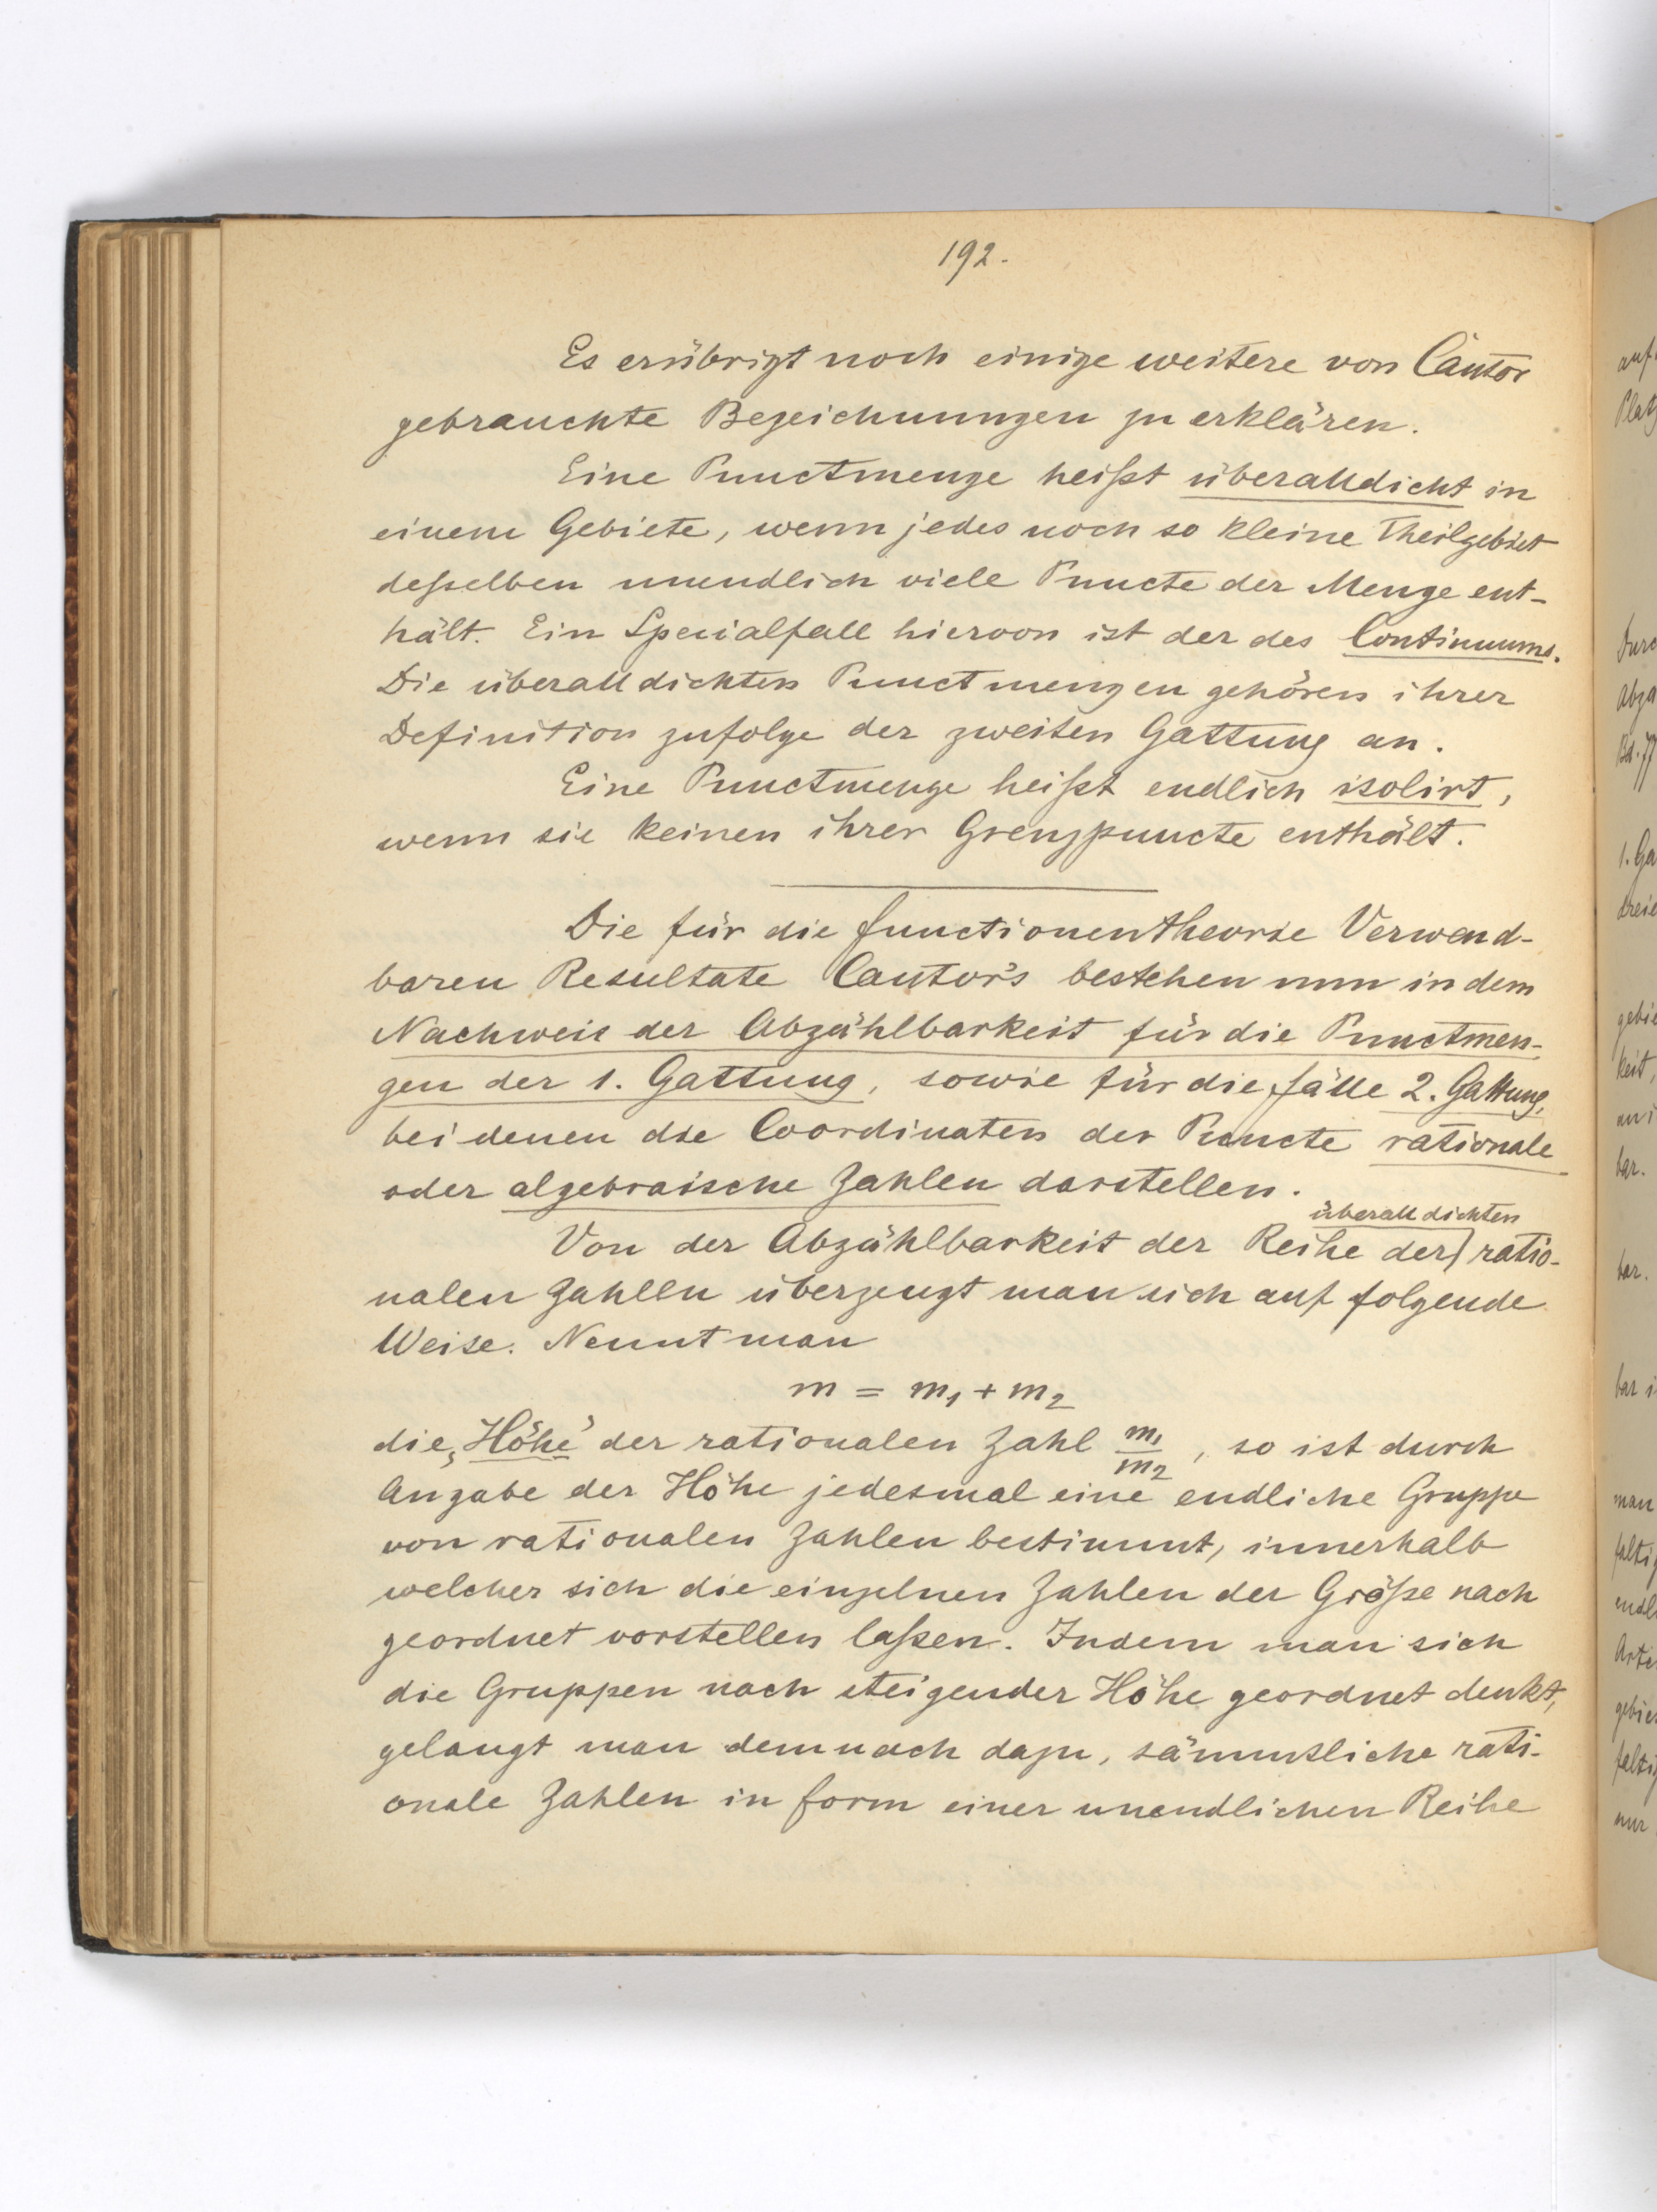 192.
Es erübrigt noch einige weitere von Cantor
gebrauchte Bezeichnungen zu erklären.
Eine Punctmenge heißt überalldicht in
einem Gebiete, wenn jedes noch so kleine Theilgebiet
deßelben unendlich viele Puncte der Menge ent-
hält. Ein Specialfall hiervon ist der des Continuums.
Die überalldichten Punctmengen gehören ihrer
Definition zufolge der zweiten Gattung an.
Eine Punctmenge heißt endlich isolirt,
wenn sie keinen ihrer Grenzpuncte enthält.
Die für die Functionentheorie Verwend-
baren Resultate Cantor's bestehen nun in dem
Nachweis der Abzählbarkeit für die Punctmen-
gen der 1. Gattung, sowie für die Fälle 2. Gattung,
bei denen die Coordinaten der Puncte rationale
oder algebraische Zahlen darstellen.
überall dichten
Von der Abzählbarkeit der Reihe der) ratio-
nalen Zahlen überzeugt man sich auf folgende
Weise. Nennt man
m = m₁ + m₂
die „Höhe" der rationalen Zahl m₁/m₂, so ist durch
Angabe der Höhe jedesmal eine endliche Gruppe
von rationalen Zahlen bestimmt, innerhalb
welcher sich die einzelnen Zahlen der Größe nach
geordnet vorstellen laßen. Indem man sich
die Gruppen nach steigender Höhe geordnet denkt,
gelangt man demnach dazu, sämmtliche rati-
onale Zahlen in Form einer unendlichen Reihe